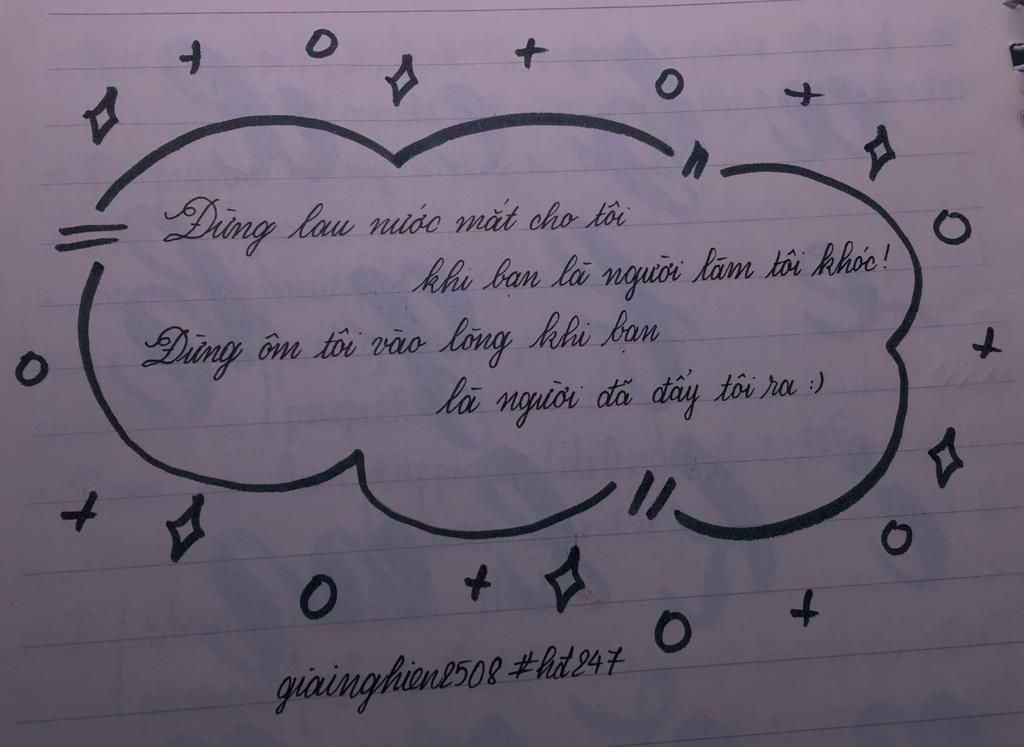 Đừng lau nước mắt cho tôi
khi bạn là người làm tôi khóc!
Đừng ôm tôi vào lòng khi bạn
là người đã đẩy tôi ra :)
giainghien2508 #hđ247